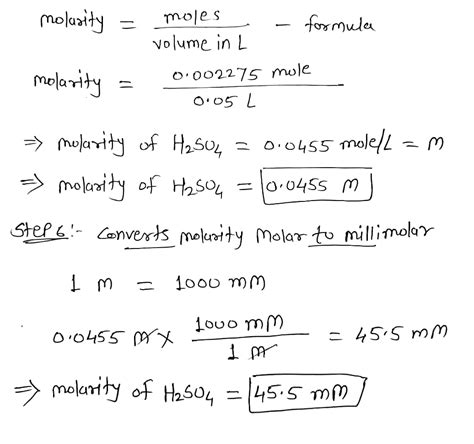 molarity = moles / volume in L - formula
molarity = 0.002275 mole / 0.05 L
⇒ molarity of H₂SO₄ = 0.0455 mole/L = M
⇒ molarity of H₂SO₄ = 0.0455 M
Step 6:- Converts molarity Molar to millimolar
1 M = 1000 mM
0.0455 M × 1000 mM / 1 M = 45.5 mM
⇒ molarity of H₂SO₄ = 45.5 mM